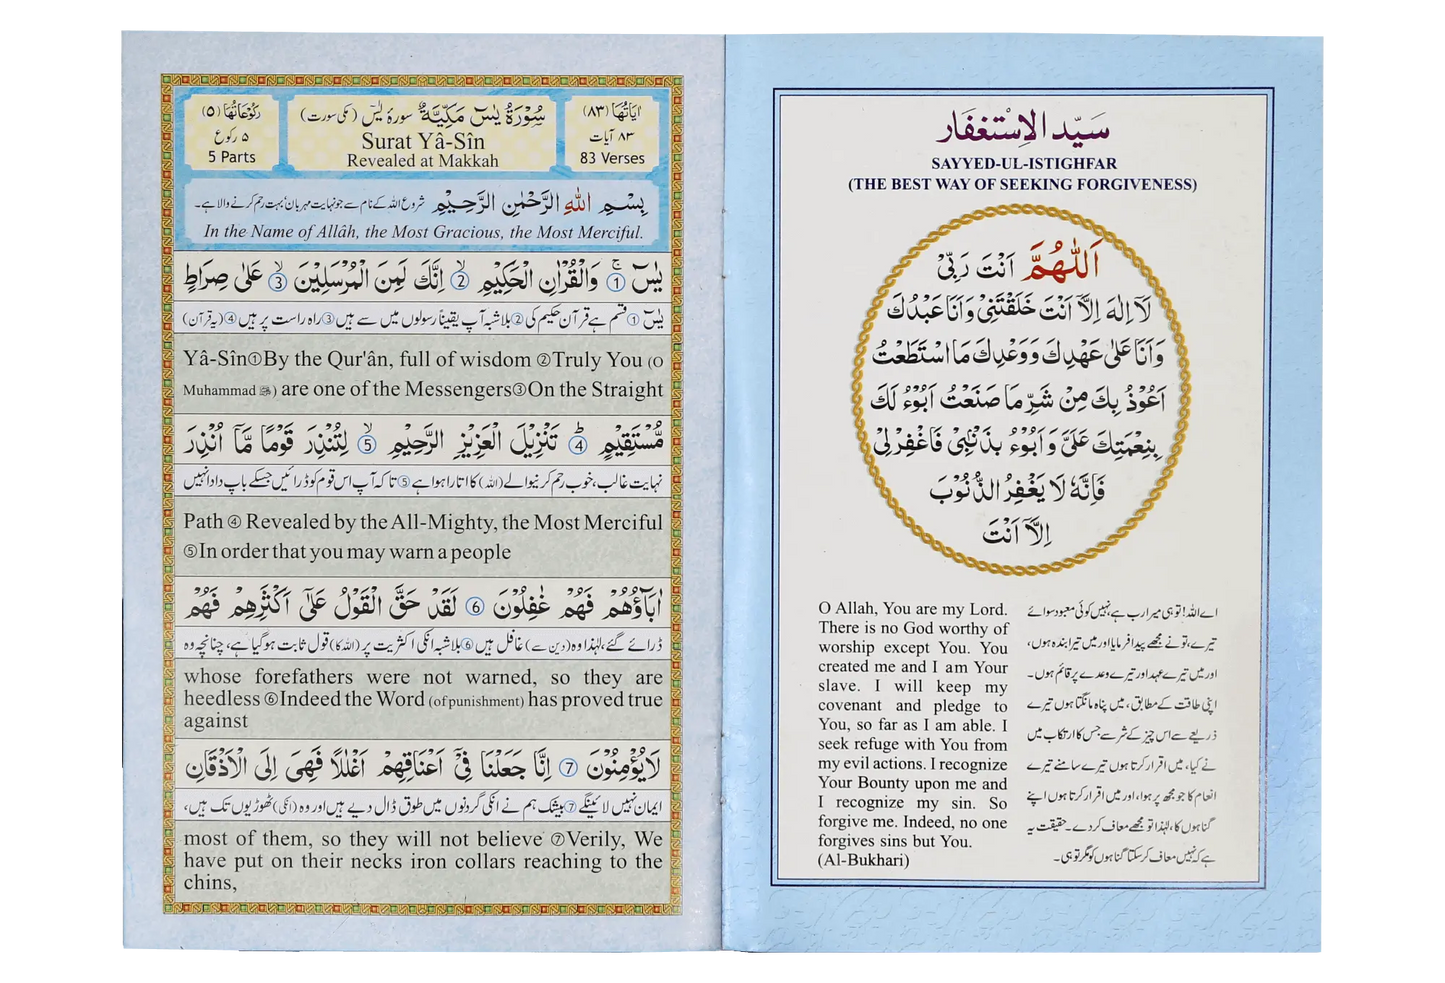 اٰيَاتُهَا (٨٣)
٨٣ آیات
83 Verses
سُوْرَةُ يٰسٓ مَكِّيَّةٌ سورۂ یٰسٓ (مکی سورت)
Surat Yâ-Sîn
Revealed at Makkah
رُكُوْعَاتُهَا (٥)
٥ رکوع
5 Parts
بِسْمِ اللّٰهِ الرَّحْمٰنِ الرَّحِيْمِ شروع اللہ کے نام سے جو نہایت مہربان بہت رحم کرنے والا ہے۔
In the Name of Allâh, the Most Gracious, the Most Merciful.
يٰسٓ ① وَالْقُرْاٰنِ الْحَكِيْمِ ② اِنَّكَ لَمِنَ الْمُرْسَلِيْنَ ③ عَلٰى صِرَاطٍ
یٰسٓ ① قسم ہے قرآن حکیم کی ② بلاشبہ آپ یقیناً رسولوں میں سے ہیں ③ راہ راست پر ہیں ④ (یہ قرآن)
Yâ-Sîn①By the Qur'ân, full of wisdom ②Truly You (O
Muhammad ﷺ) are one of the Messengers③On the Straight
مُّسْتَقِيْمٍ ④ تَنْزِيْلَ الْعَزِيْزِ الرَّحِيْمِ ⑤ لِتُنْذِرَ قَوْمًا مَّاۤ اُنْذِرَ
نہایت غالب، خوب رحم کرنیوالے (اللہ) کا اتارا ہوا ہے ⑤ تاکہ آپ اس قوم کو ڈرائیں جسکے باپ دادا نہیں
Path ④ Revealed by the All-Mighty, the Most Merciful
⑤In order that you may warn a people
اٰبَآؤُهُمْ فَهُمْ غٰفِلُوْنَ ⑥ لَقَدْ حَقَّ الْقَوْلُ عَلٰۤى اَكْثَرِهِمْ فَهُمْ
ڈرائے گئے، لہٰذا وہ (دین سے) غافل ہیں ⑥ بلاشبہ انکی اکثریت پر (اللہ کا) قول ثابت ہوگیا ہے، چنانچہ وہ
whose forefathers were not warned, so they are
heedless ⑥Indeed the Word (of punishment) has proved true
against
لَا يُؤْمِنُوْنَ ⑦ اِنَّا جَعَلْنَا فِيْۤ اَعْنَاقِهِمْ اَغْلٰلًا فَهِيَ اِلَى الْاَذْقَانِ
ایمان نہیں لائینگے ⑦ بیشک ہم نے انکی گردنوں میں طوق ڈال دیے ہیں اور وہ (انکی) ٹھوڑیوں تک ہیں،
most of them, so they will not believe ⑦Verily, We
have put on their necks iron collars reaching to the
chins,
سَيِّدُ الْاِسْتِغْفَار
SAYYED-UL-ISTIGHFAR
(THE BEST WAY OF SEEKING FORGIVENESS)
اَللّٰهُمَّ اَنْتَ رَبِّيْ
لَاۤ اِلٰهَ اِلَّاۤ اَنْتَ خَلَقْتَنِيْ وَاَنَا عَبْدُكَ
وَاَنَا عَلٰى عَهْدِكَ وَوَعْدِكَ مَا اسْتَطَعْتُ
اَعُوْذُ بِكَ مِنْ شَرِّ مَا صَنَعْتُ اَبُوْءُ لَكَ
بِنِعْمَتِكَ عَلَيَّ وَاَبُوْءُ بِذَنْبِيْ فَاغْفِرْ لِيْ
فَاِنَّهٗ لَا يَغْفِرُ الذُّنُوْبَ
اِلَّاۤ اَنْتَ
O Allah, You are my Lord.
There is no God worthy of
worship except You. You
created me and I am Your
slave. I will keep my
covenant and pledge to
You, so far as I am able. I
seek refuge with You from
my evil actions. I recognize
Your Bounty upon me and
I recognize my sin. So
forgive me. Indeed, no one
forgives sins but You.
(Al-Bukhari)
اے اللہ! تو ہی میرا رب ہے نہیں کوئی معبود سوائے
تیرے، تو نے مجھے پیدا فرمایا اور میں تیرا بندہ ہوں،
اور میں تیرے عہد اور تیرے وعدے پر قائم ہوں۔
اپنی طاقت کے مطابق، میں پناہ مانگتا ہوں تیرے
ذریعے سے اس چیز کے شر سے جس کا ارتکاب میں
نے کیا، میں اقرار کرتا ہوں تیرے سامنے تیرے
انعام کا جو مجھ پر ہوا، اور میں اقرار کرتا ہوں اپنے
گناہوں کا، لہٰذا تو مجھے معاف کردے۔ حقیقت یہ
ہے کہ نہیں معاف کرسکتا گناہوں کو مگر تو ہی۔